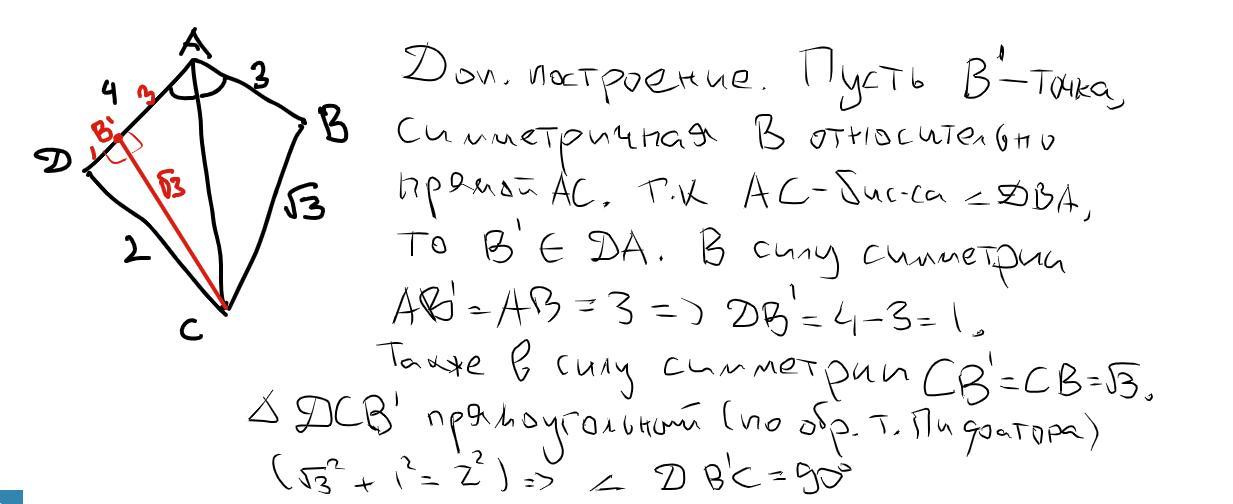 A
4
3
3
B'
B
D
1
√3
√3
2
C
Доп. построение. Пусть B'-точка,
симметричная B относительно
прямой AC. Т.к AC-бис-са ∠DBA,
то B' ∈ DA. В силу симметрии
AB' = AB = 3 => DB' = 4-3=1.
Также в силу симметрии CB'=CB=√3.
△ DCB' прямоугольный (по обр. т. Пифагора)
(√3² + 1² = 2²) => ∠ DB'C = 90°